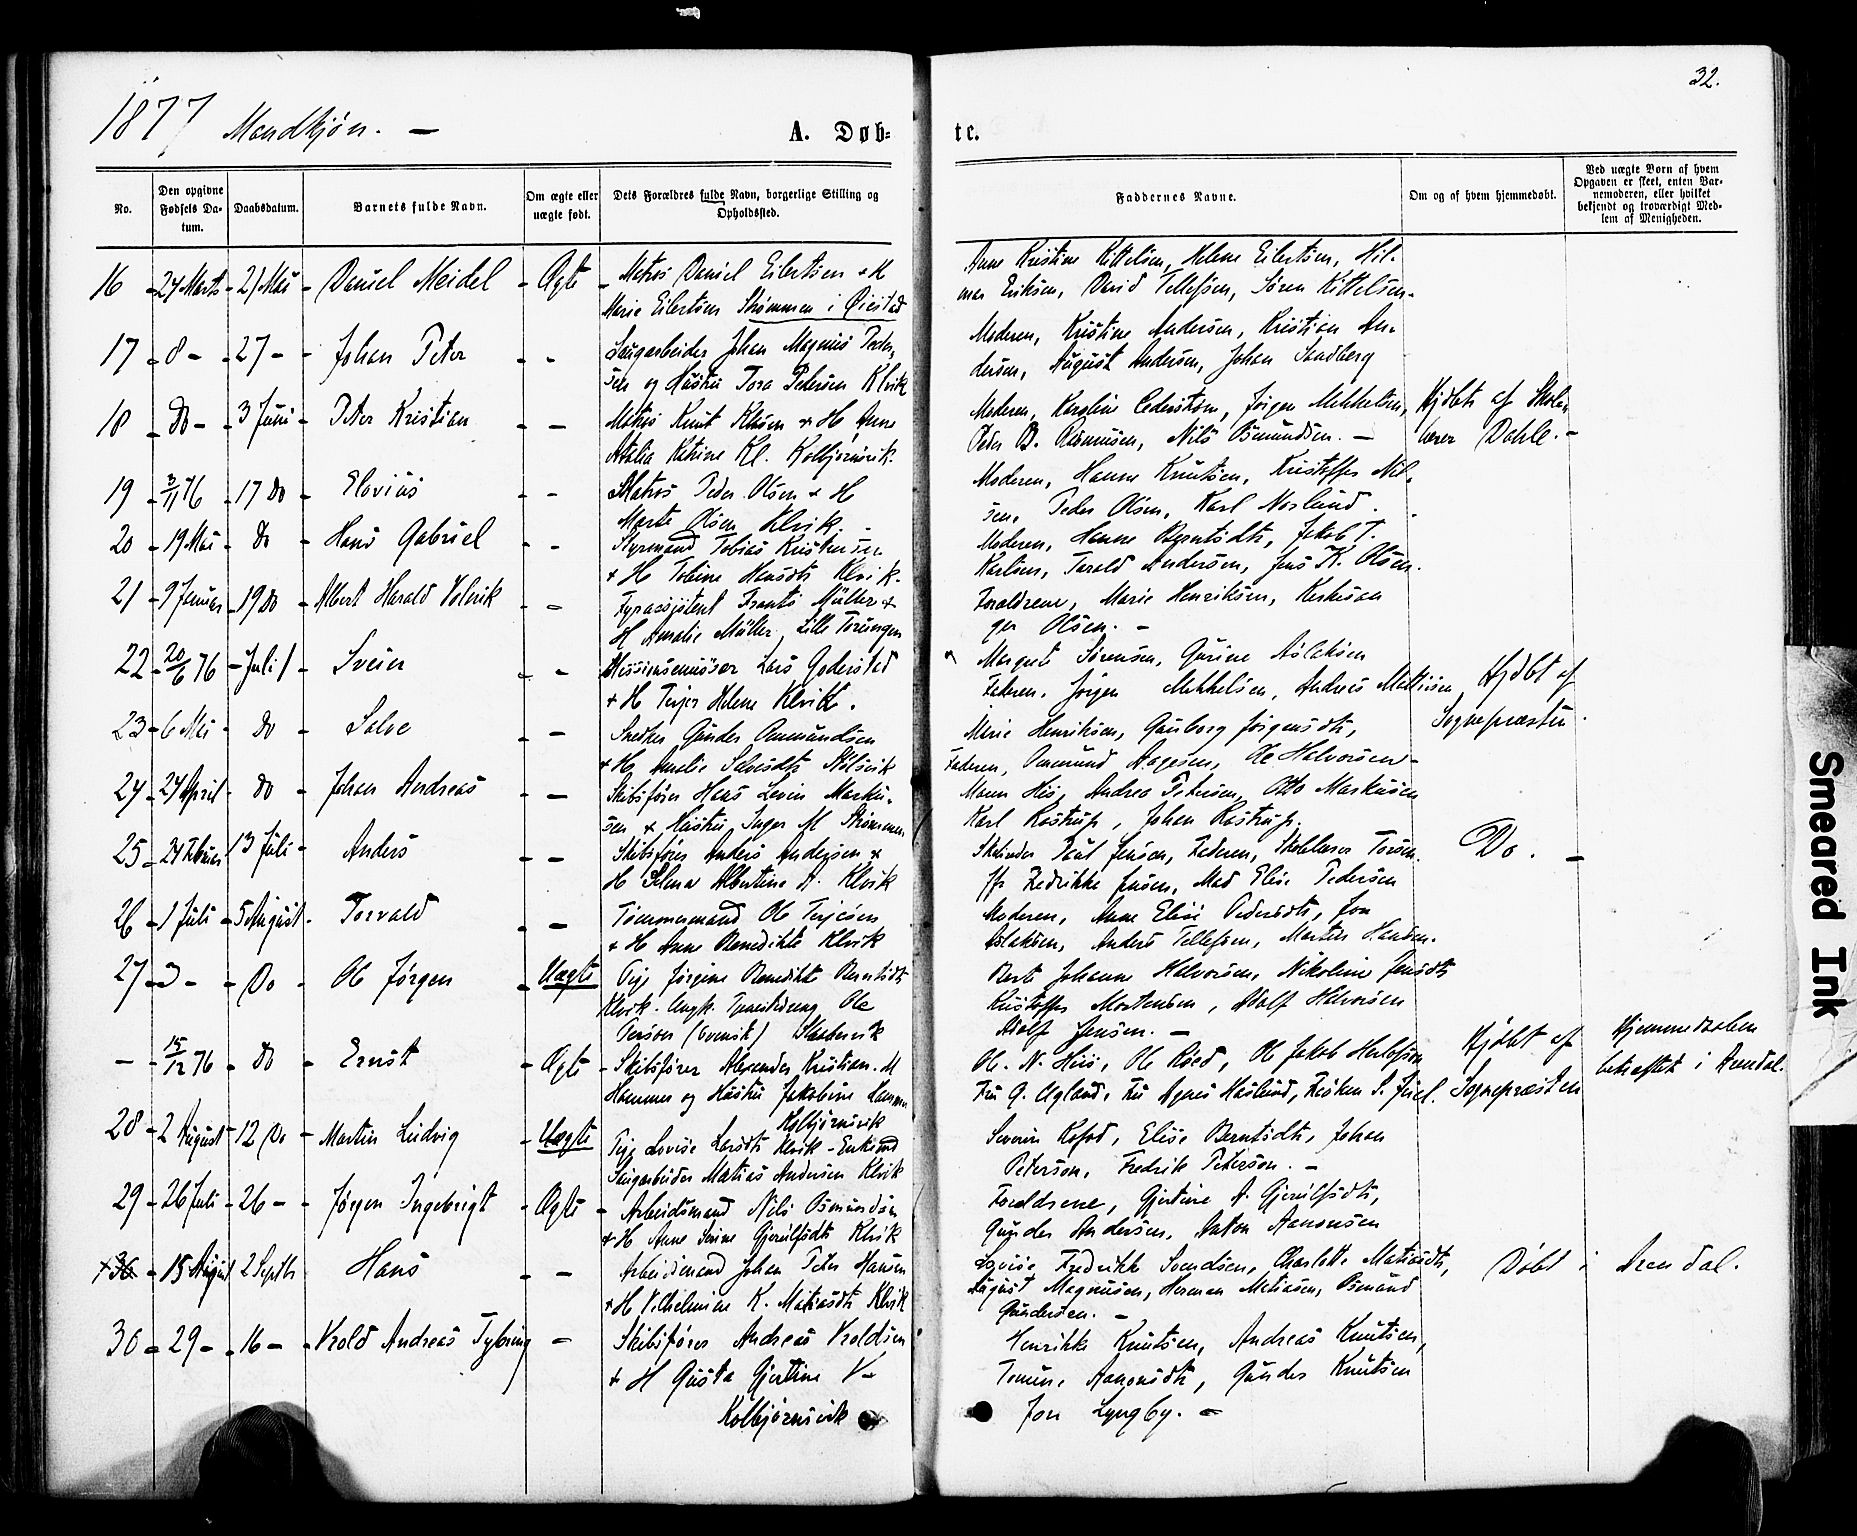 32.
1877 Mandkjøn. —
A. Døb-
te.
No.
Den opgivne Fødsels Da-
tum.
Daabsdatum.
Barnets fulde Navn.
Om ægte eller
uægte født.
Dets Forældres fulde Navn, borgerlige Stilling og
Opholdssted.
Faddernes Navne.
Om og af hvem hjemmedøbt.
Ved uægte Børn af hvem
Opgaven er skeet, enten Bar-
nemoderen, eller hvilket
bekjendt og troværdigt Med-
lem af Menigheden.
16 - 24 Marts - 21 Mai - Daniel Meidel - Ægte - Matros Daniel Eilertsen + H
Marie Eilertsen Strømmen i Øiestad
Anne Kristine Kittelsen, Helene Eilertsen, Hil-
mar Eriksen, David Tellefsen, Søren Kittelsen.
17 - 8 - - 27 - - Johan Peter - - Saugarbeider Johan Magnus Peder-
sen og Hustru Tora Petersen Klvik
Moderen, Kristine Andersen, Kristian An-
dersen, August Andersen, Johan Sandberg
18 - do - - 3 Juni - Peter Kristian - - Matros Knut + H Anne
Atalia Katrine Kl. Kolbjørnsvik.
Moderen, Karoline Cederstrøm, Jørgen Mikkelsen,
Peder B. Rasmusen, Nils Osmundsen. —
Hjdbt af Skole-
lærer Dahle. -
19 - 3/11 76 - 17 do - Elovius - - Matros Peder Olsen + H
Marte Olsen Klvik. -
Moderen, Hanne Knutsen, Kristoffer Nil-
sen, Peder Olsen, Karl Norlund.
20 - 19 Mai - do - Hans Gabriel - - Styrmand Tobias Kristensen
+ H Tobine Hansdtr Klvik.
Moderen, Hanne Berntsdtr, Jakob T.
Karlsen, Tarald Andersen, Jens K. Olsen.
21 - 9 Januar - 19 do - Albert Harald - - Fyrassistent Frants Müller +
H Amalie Müller, Lille Torungen
Forældrene, Marie Henriksen,
Olsen. -
22 - 20/6 76 - Juli 1 - Sveier - - Lars
+ H Terjer Helene Klvik.
Margrete Sørensen, Gurine Aslaksen
Faderen, Jørgen Mikkelsen, Andreas Mattisen
Hjdbt af
Sognepræsten.
23 - 6 Mai - do - Salve - - Snedker Gunder Ommundsen
+ H Amalie Salvesdtr
Marie Henriksen, Gunborg Jørgensdtr,
Faderen, Ommund Aagesen, Ole Halvorsen -
24 - 24 April - do - Johan Andreas - - Skibsfører Hans Levin Marku-
sen + Hustru Inger M Strømmen
Maren His, Andrea Petersen, Otto Markusen
Karl Rostrup, Johan Rostrup.
25 - 24 Februar 13 Juli - Anders - - Skibsfører Anders Andersen +
H Selma Albertine A. Klvik
Paul Jensen, Faderen, Skolelærer
Fr Fredrikke Jensen, Mad Elise Pedersen
Do. -
26 - 1 Juli - 5 August - Torvald - - Tømmermand Ole Terjesen
+ H Anne Benedikte Klvik
Moderen, Anne Elise Pedersdtr, Jon
Aslaksen, Anders Tellefsen, Morten Hansen.
27 - 3 - - Do - Ole Jørgen - Uægte Pige Jørgine Benedikte Berntsdtr
Klvik. Ungk. Tjenestedreng Ole
Person (svensk)
Berte Johanne Halvorsen, Nikoline Jensdtr
Kristoffer Mortensen, Adolf Halvorsen
Adolf Jensen. —
- - 15/12 76 - do - Ernst - Ægte - Skibsfører Alexander Kristian M
Hammer og Hustru Jakobine Hammer
Kolbjørnsvik
Ole N. His, Ole Roed, Ole Jakob Herlofson
Fru G. Agland, Fru Agnes Haslund, Frøken S. Juel.
Hjdbt af
Sognepræsten
Hjemmedaaben
bekræftet i Arendal.
28 - 2 August - 12 Do - Martin Ludvig - Uægte Pige Lovise Larsdtr Klvik - Enkemd
Saugarbeider Matias Andersen Klvik
Severin Rofod, Elise Berntsdtr, Johan
Peterson, Fredrik Peterson. —
29 - 26 Juli - 26 - - Jørgen Ingebrigt - Ægte - Arbeidsmand Nils Osmundsen
+ H Anne Sirine Gjerulfsdtr Klvik
Forældrene, Gjertine A. Gjerulfsdtr,
Gunder Andersen, Anton Aanonsen
+ 30 - 15 August 2 Septbr Hans - - Arbeidsmand Johan Peter Hansen
+ H Vilhelmine K. Matiasdtr Klvik
Lovise Fredrikke Svendsen, Charlotte Matiasdtr,
August Magnusen, Herman Matiasen, Osmund
Gundersen. —
Døbt i Arendal.
30 - 29 - - 16 - - Vrold Andreas Tybring - Skibsfører Andreas Vroldsen
+ H Gusta Gjertine V -
Kolbjørnsvik
Henrikke Knutsen, Andreas Knutsen,
Aanonsdtr, Gunder Knutsen
Jon Lyngby. -
Smeared Ink